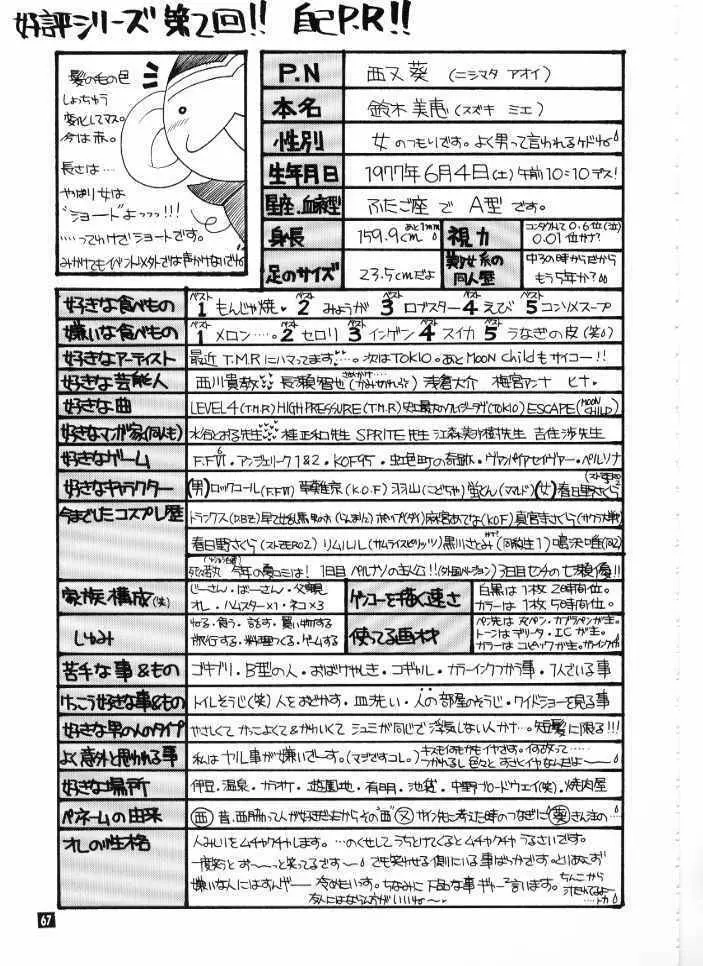 好評シリーズ第2回!! 自己P.R!!
髪の毛の色
しょっちゅう
変化してマス。
今は赤。
長さは…
やはり女は
"ショート"よっっっ!!!
……ってわけでショートです。
みかけてもイベント以外では声かけないでね
P.N 西又葵(ニシマタ アオイ)
本名 鈴木美恵(スズキ ミエ)
性別 女のつもりです。よく男って言われるケドね
生年月日 1977年6月4日(土)午前10:10デス!
星座、血液型 ふたご座で A型です。
身長 159.9cm あと1mm
視力 コンタクトで0.6位(泣) 0.01位かナ?
足のサイズ 23.5cmだよ
美少女系の同人歴 中3の時からだから もう5年か?
好きな食べもの ベスト1もんじゃ焼 ベスト2みょうが ベスト3ロブスター ベスト4えび ベスト5コンソメスープ
嫌いな食べもの ベスト1メロン…。ベスト2セロリ ベスト3インゲン ベスト4スイカ ベスト5うなぎの皮(笑)
好きなアーティスト 最近T.M.Rにハマってます…。次はTOKIO。あとMOON Childもサイコー!!
好きな芸能人 西川貴教 長瀬智也 浅倉大介 梅宮アンナ ヒナ
好きな曲 LEVEL4(T.M.R) HIGH PRESSURE(T.M.R) (TOKIO) ESCAPE(MOON CHILD)
好きなマンガ家(同人も) 水谷とおる先生 桂正和先生 SPRITE先生 江森美沙樹先生 吉住渉先生
好きなゲーム F.FVI・アンジェリーク1&2・KOF95・虹色町の奇跡・ヴァンパイアセイヴァー・ペルソナ
好きなキャラクター (男)ロックコール(F.FVI) 草薙京(K.O.F) 羽山(こどちゃ) 蛍どん(ママレド) (女)春日野さくら(ストZERO2)
今までしたコスプレ歴 トランクス(DBZ) 早乙女乱馬 男のみ(らんま1/2) ポップ(ダイ) 麻宮あてな(KOF) 真宮寺さくら(サクラ大戦)
春日野さくら(ストZERO2) リムルル(サムライスピリッツ) 黒川さとみ(同級生1) 鳴沢唯(同2)
今年の夏コミは! 1日目ペルソナの主人公!! 3日目センチの七瀬優!!
家族構成(笑) じーさん・ばーさん・父親母親
オレ・ハムスター×1・ネコ×3
ゲンコーを描く速さ 白黒は1枚2時間位。
カラーは1枚5時間位。
しゅみ ねる・食う・話す・買い物する
旅行する・料理つくる・ゲームする
使ってる画材 ペン先は丸ペン・カブラペンが主。
トーンはデリータ・ICが主。
カラーはコピックが主。カラーインクも
苦手な事&もの ゴキブリ・B型の人・おばけやしき・コギャル・カラーインクつかう事・1人でいる事
けっこう好きな事&もの トイレそうじ(笑) 人をおどかす・皿洗い・人の部屋のそうじ・ワイドショーを見る事
好きな男の人のタイプ やさしくて かっこよくて&かわいくて シュミが同じで浮気しない人かナ…。短髪に限る!!!
よく意外と思われる事 私はヤル事が嫌いでーす。(マジですコレ。)
好きな場所 伊豆・温泉・カラオケ・遊園地・有明・池袋・中野ブロードウェイ(笑)・焼肉屋
ペネームの由来 (西)昔、西脇って人が好きだったからその"西"(又)サイン先に考えた時のつなぎに(葵)
オレの性格 人みしりをムチャクチャします。…のくせしてうちとけてくるとムチャクチャうるさいです。
一度笑うとお〜〜っと笑ってるです〜 でも笑わせる側にいる事ばっかです。とりあえず
嫌いな人にはすんげー 冷めてます。ちなみに下品な事ギャー2言います。
友人にはならん方がいいね〜
67